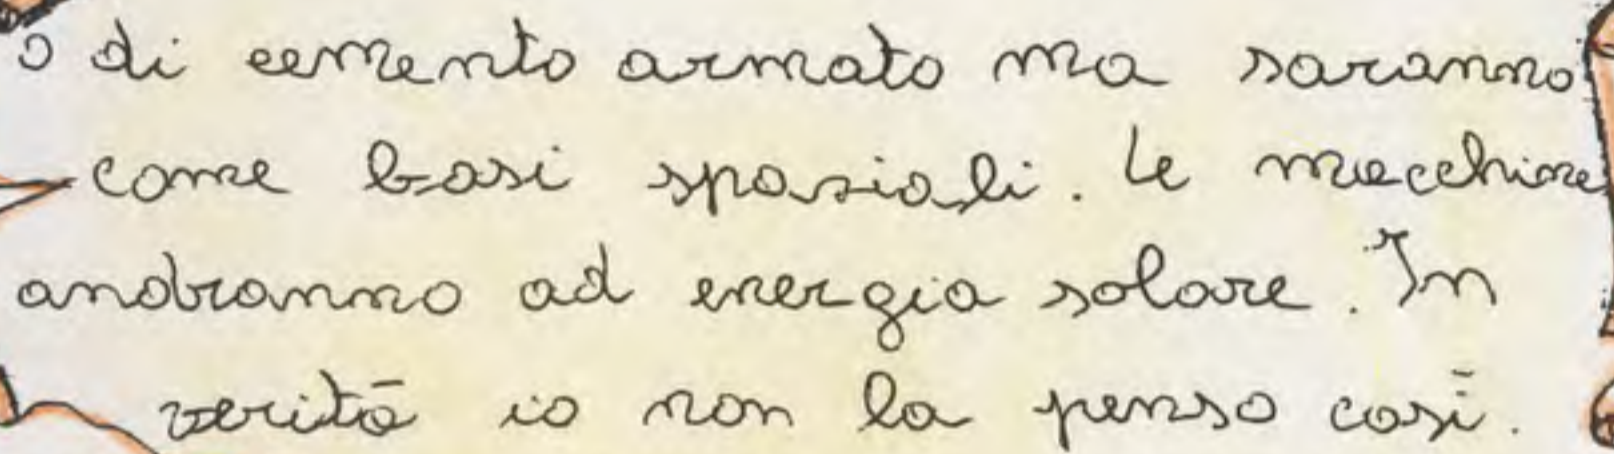 o di cemento armato ma saranno
come basi spaziali. Le macchine
andranno ad energia solare. In
verità io non la penso così.